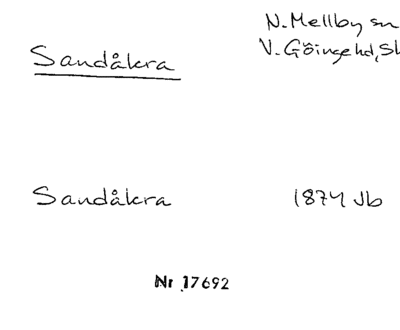 N. Mellby sn
Sandåkra
V. Göingehd, Sk
Sandåkra 1874 Jb
Nr 17692